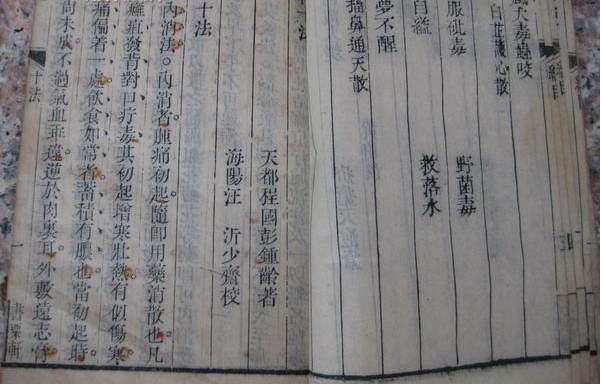 犬毒蟲咬
白芷護心散
服砒毒 野菌毒
自縊 救落水
夢不醒
搐鼻通天散
法
天都程國彭鍾齡著
海陽汪 沂少齋校
十法
內消法。內消者腫痛初起隨即用藥消散也凡
癰疽發背對口疔毒其初起增寒壯熱有似傷寒
痛偏着一處飲食如常者蓄積有膿也當初起時
尚未成不過氣血乖違逆於肉裏耳外敷遠志膏
十法 一